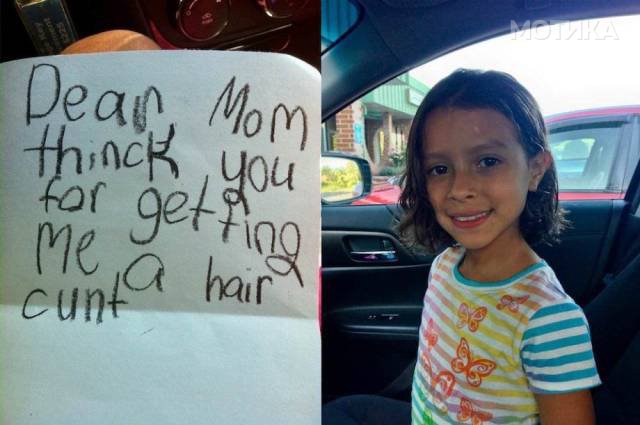 Dear Mom
thinck you
for getting
me a hair
cunt
МОТИКА